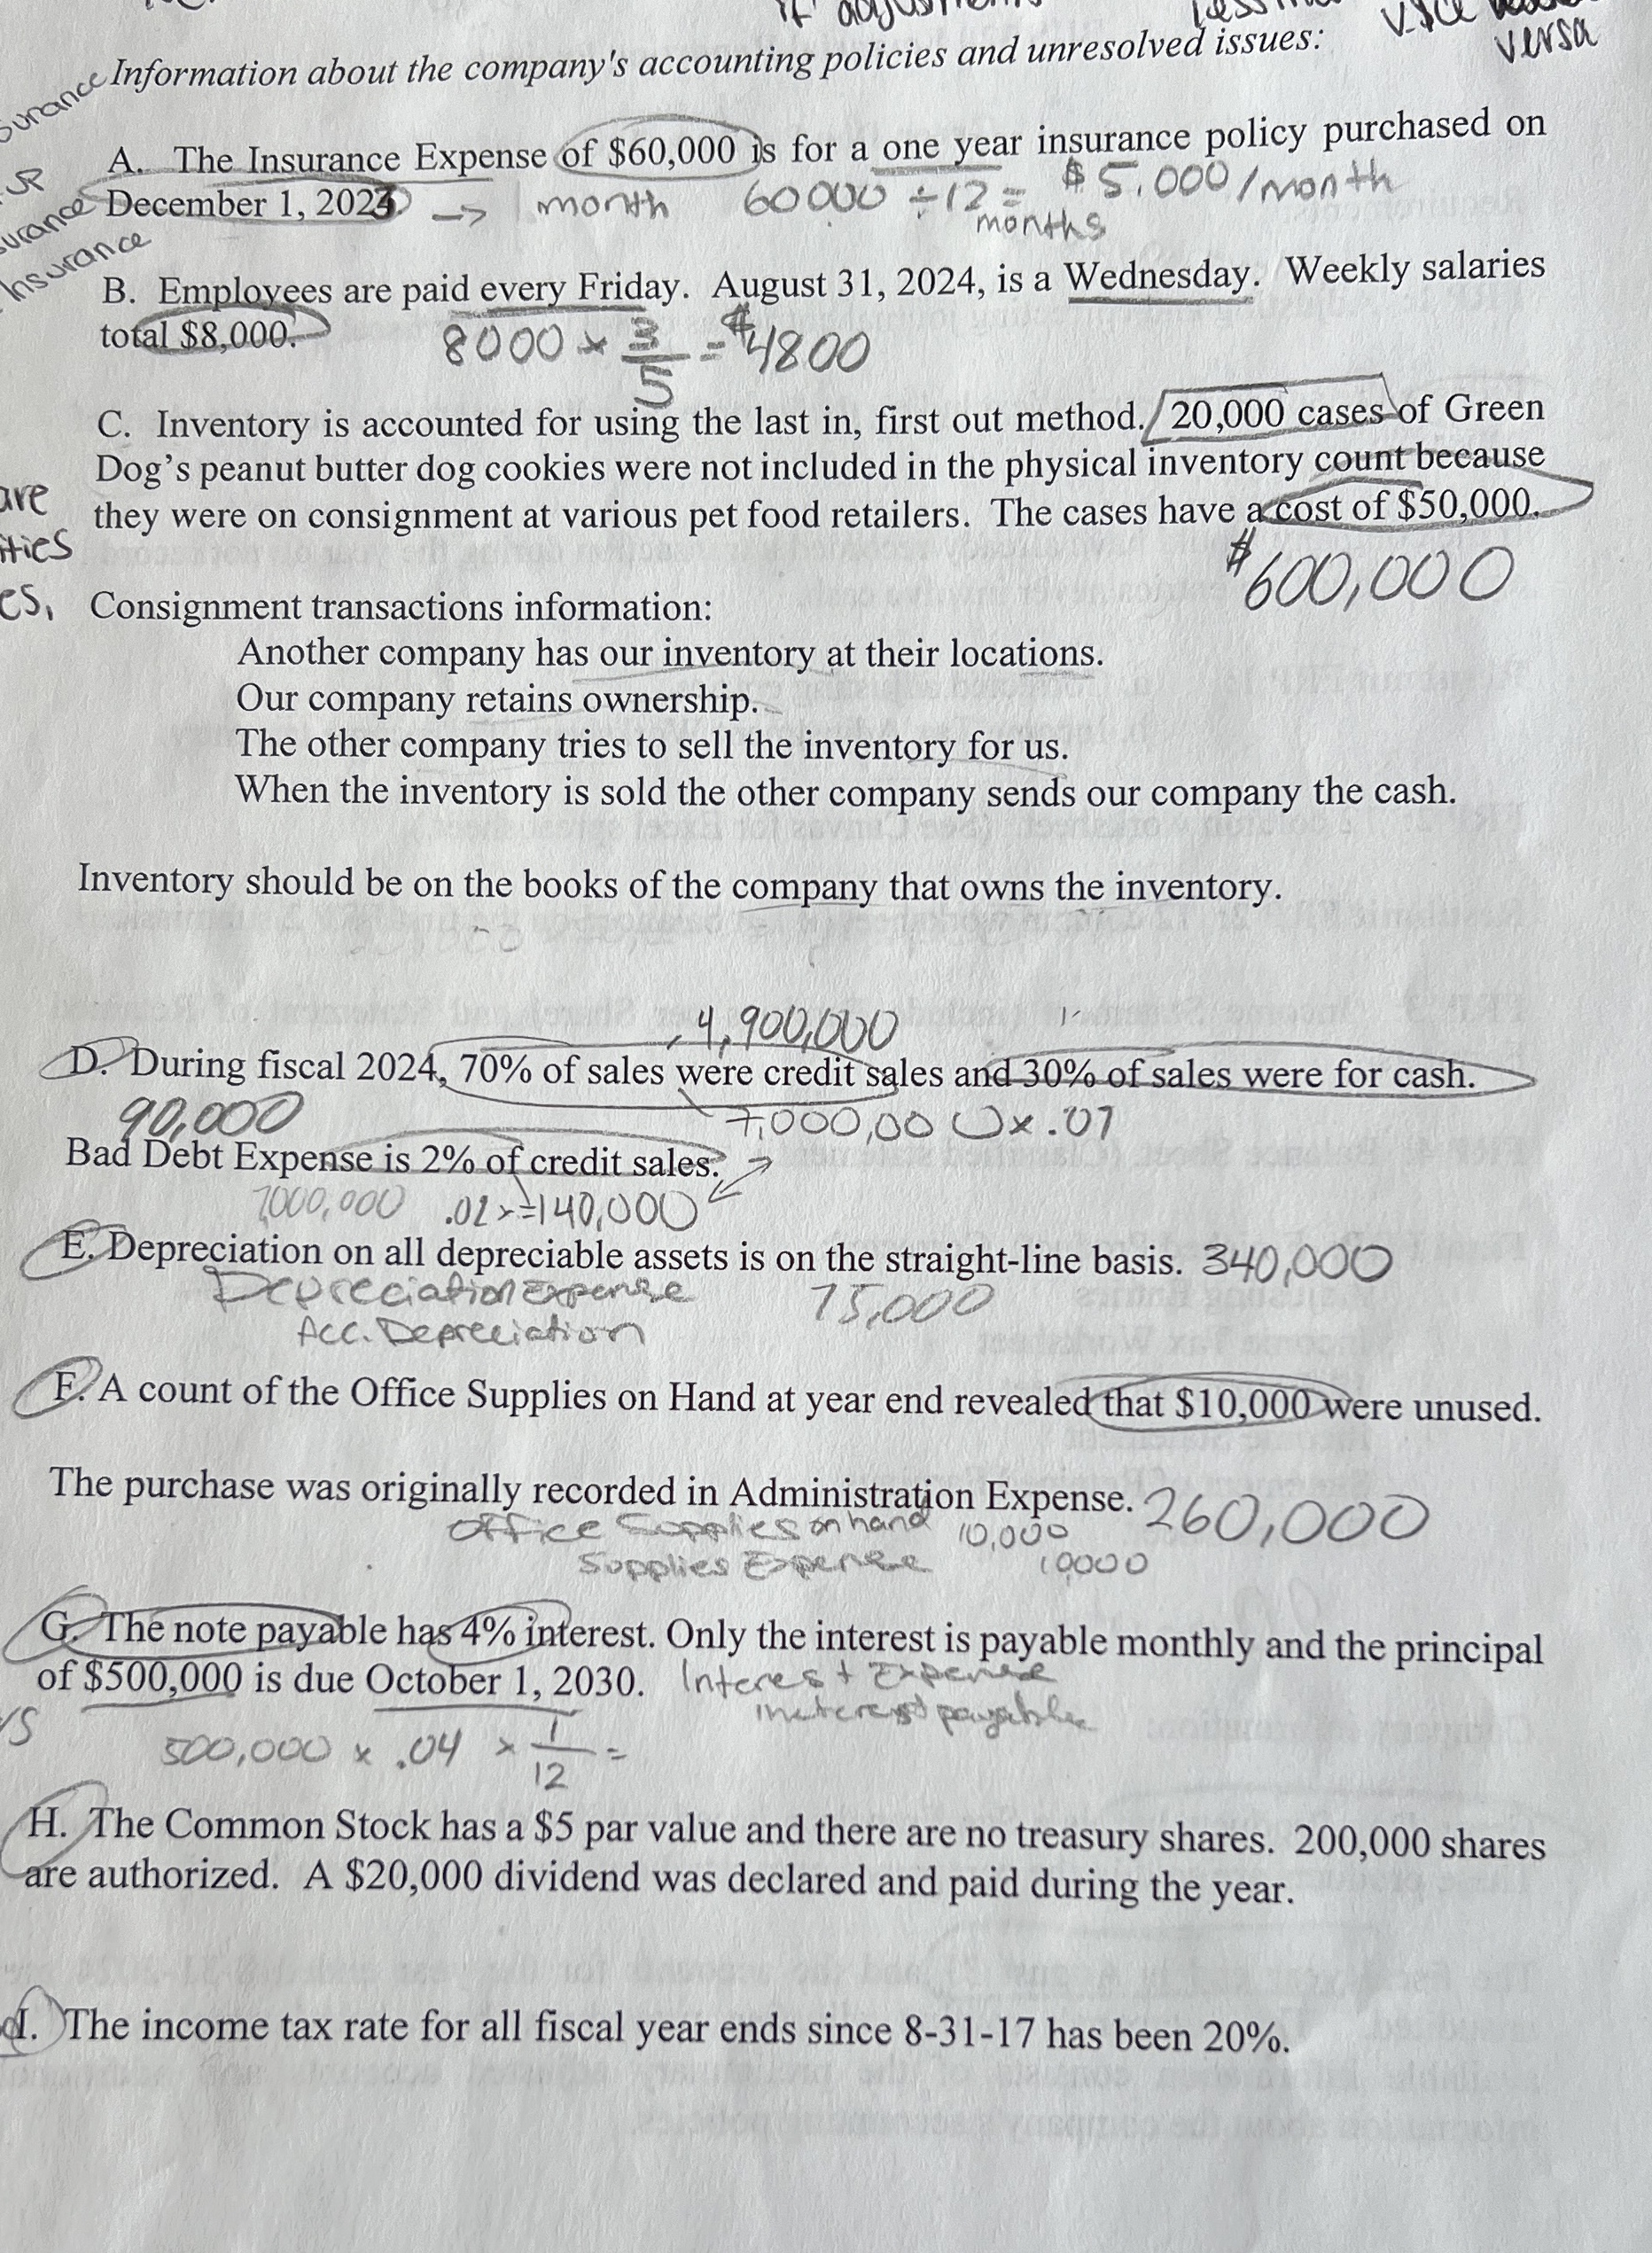 if adjustments
vice
versa
Information about the company's accounting policies and unresolved issues:
surance
A. The Insurance Expense of $60,000 is for a one year insurance policy purchased on
December 1, 2023. → 1 month 60000 ÷ 12 = $5,000/month
months
urance
Insurance
B. Employees are paid every Friday. August 31, 2024, is a Wednesday. Weekly salaries
total $8,000. 8000 × 3/5 = $4800
C. Inventory is accounted for using the last in, first out method. 20,000 cases of Green
Dog's peanut butter dog cookies were not included in the physical inventory count because
are
they were on consignment at various pet food retailers. The cases have a cost of $50,000.
ities
$600,000
es,
Consignment transactions information:
Another company has our inventory at their locations.
Our company retains ownership.
The other company tries to sell the inventory for us.
When the inventory is sold the other company sends our company the cash.
Inventory should be on the books of the company that owns the inventory.
4,900,000
D. During fiscal 2024, 70% of sales were credit sales and 30% of sales were for cash.
90,000 7,000,000 x .07
Bad Debt Expense is 2% of credit sales.
7,000,000 .02 x = 140,000
E. Depreciation on all depreciable assets is on the straight-line basis. 340,000
Depreciation Expense 75,000
Acc. Depreciation
F. A count of the Office Supplies on Hand at year end revealed that $10,000 were unused.
The purchase was originally recorded in Administration Expense. 260,000
Office Supplies on hand 10,000
Supplies Expense 10000
G. The note payable has 4% interest. Only the interest is payable monthly and the principal
of $500,000 is due October 1, 2030. Interest Expense
interest payable
500,000 x .04 x 1/12 =
H. The Common Stock has a $5 par value and there are no treasury shares. 200,000 shares
are authorized. A $20,000 dividend was declared and paid during the year.
I. The income tax rate for all fiscal year ends since 8-31-17 has been 20%.